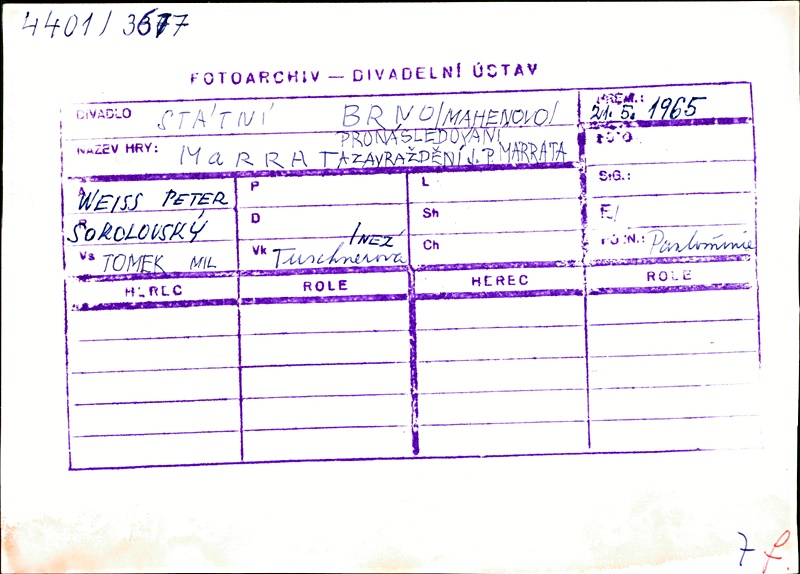 4401/3677
FOTOARCHIV — DIVADELNÍ ÚSTAV
DIVADLO STÁTNÍ BRNO/MAHENOVO/
PREM.: 21. 5. 1965
NÁZEV HRY: MARRAT PRONÁSLEDOVÁNÍ
A ZAVRAŽDĚNÍ J. P. MARRATA
FOTO
A WEISS PETER
P
L
SIG.:
R SOKOLOVSKÝ
D
Sh
F/
Vs TOMEK MIL
Vk INEZ Tuschnerová
Ch
POZN.: Pantomimie
HEREC ROLE HEREC ROLE
7 f.